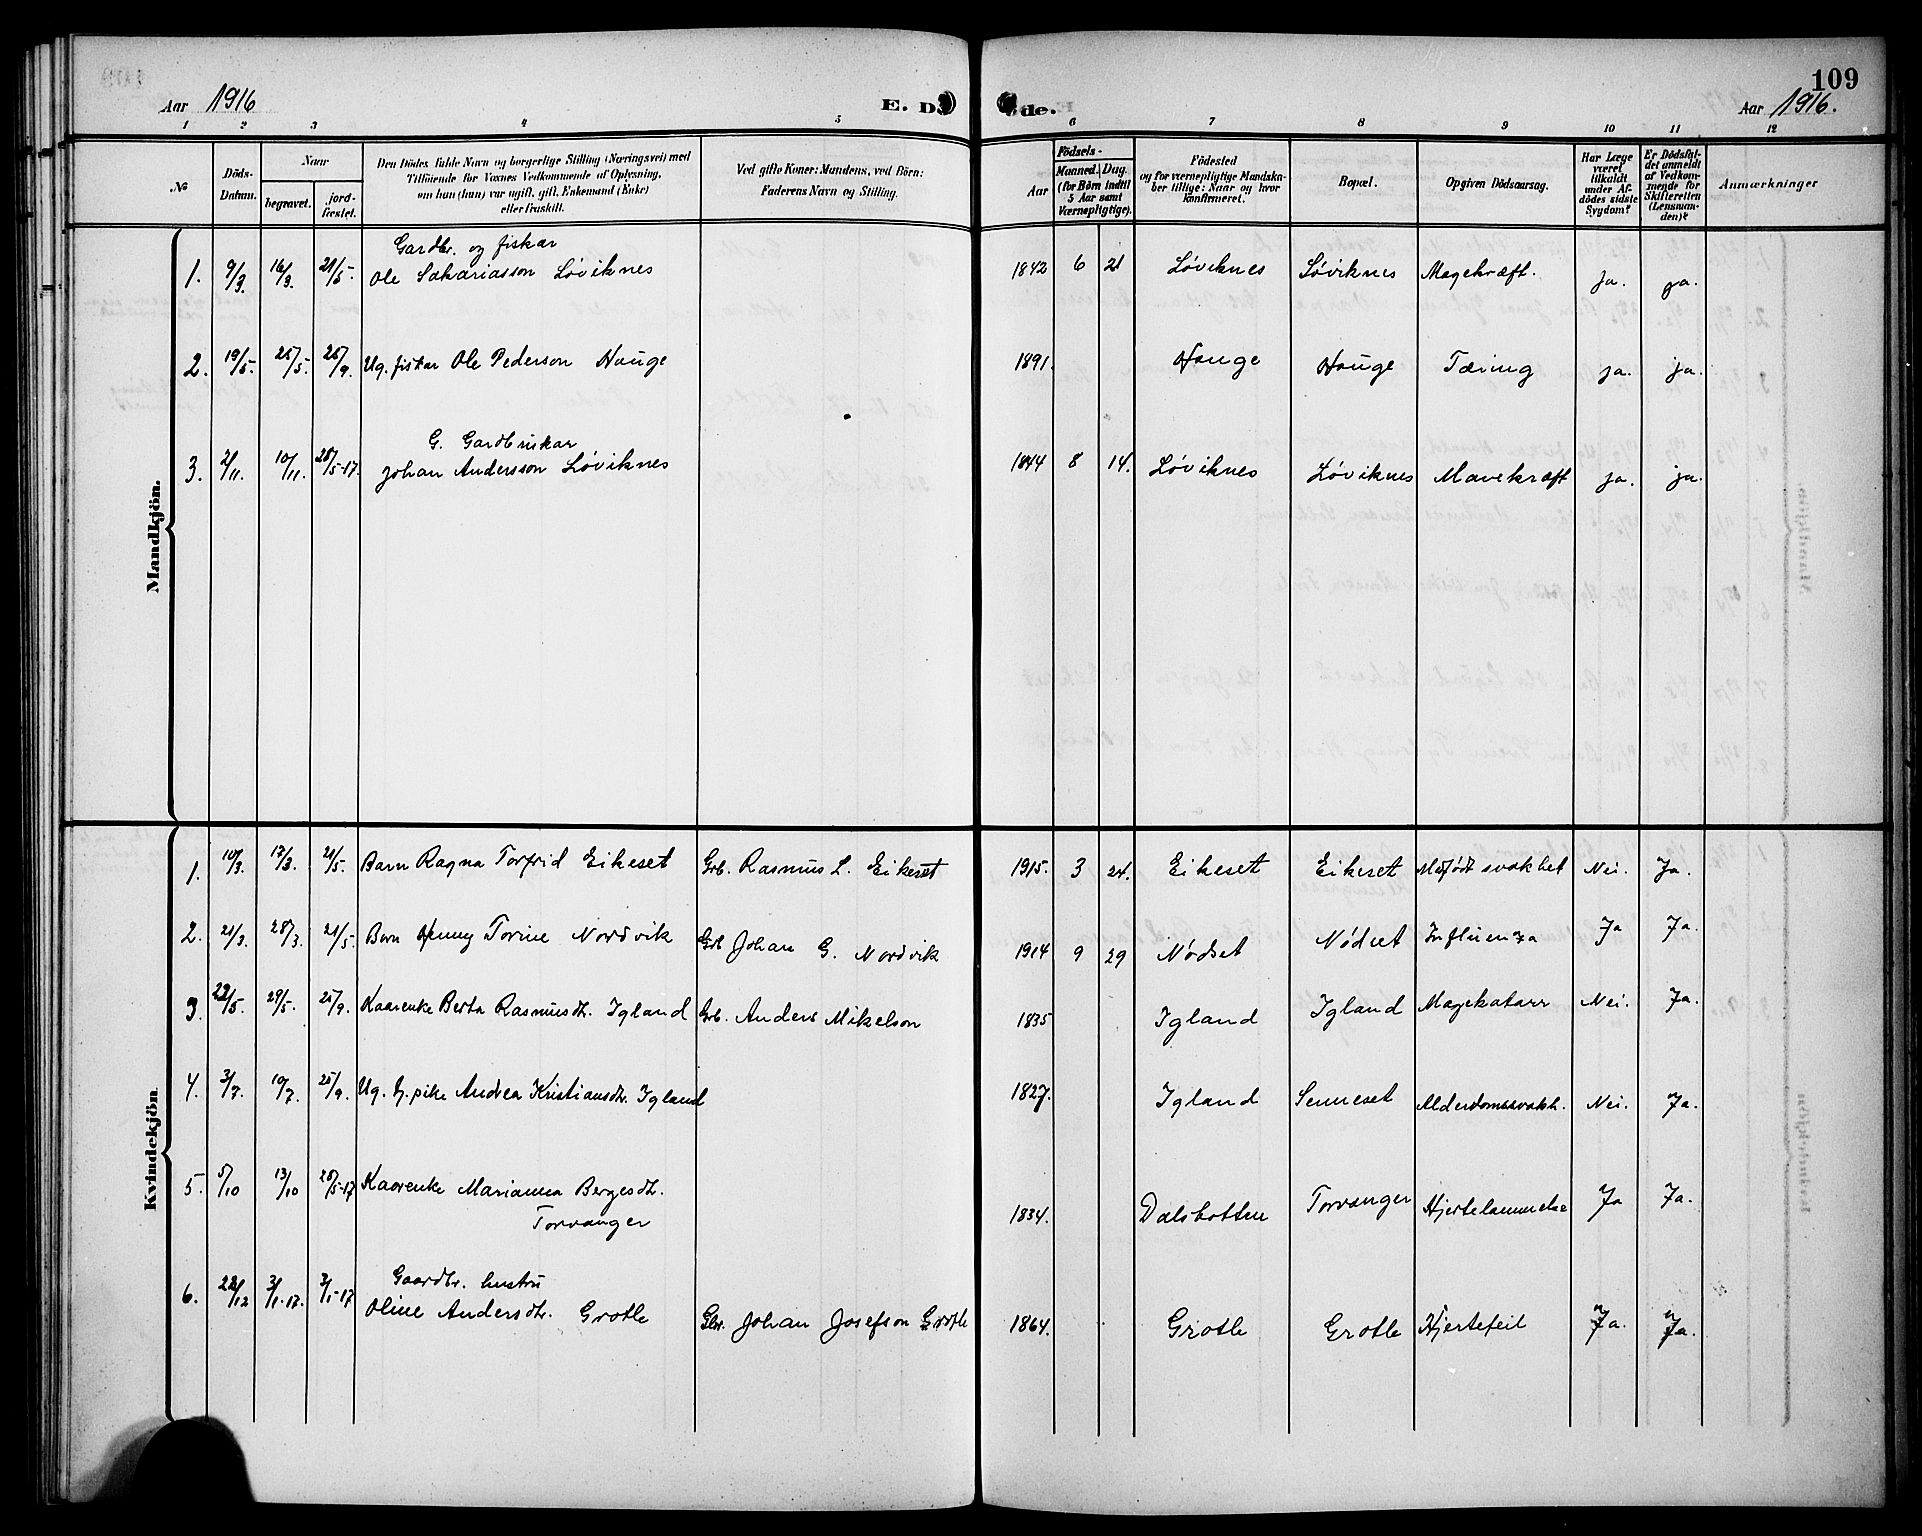 109
Aar 1916 E. D de. Aar 1916.
1 2 3 4 5 6 7 8 9 10 11 12
No
Döds-Datum.
Naar
begravet.
jord-fæstet.
Den Dödes fulde Navn og borgerlige Stilling (Næringsvei) med
Tilföiende for Voxnes Vedkommende af Oplysning,
om han (hun) var ugift, gift, Enkemand (Enke)
eller fraskilt.
Ved gifte Koner: Mandens, ved Börn:
Faderens Navn og Stilling.
Födsels-
Aar
Maaned. Dag.
(for Börn indtil
5 Aar samt
Værnepligtige).
Födested
og for værnepligtige Mandska-
ber tillige: Naar og hvor
konfirmeret.
Bopæl.
Opgiven Dödsaarsag.
Har Læge
været
tilkaldt
under Af-
dödes sidste
Sygdom?
Er Dödsfal-
det anmeldt
af Vedkom-
mende for
Skifteretten
(Lensman-
den)?
Anmærkninger
Mandkjön.
Gardbr. og fiskar
1. 9/3 16/3. 21/5. Ole Sakariasson Løviknes 1842 6 21 Løviknes Løviknes Magekræft. ja. ja.
2. 19/5. 25/5. 25/9. Ug. fiskar Ole Pederson Hauge 1891. Hauge Hauge Tæring ja. ja.
G. Gardbrukar
3. 2/11. 10/11. 28/5-17. Johan Andersson Løviknes 1844 8 14. Løviknes Løviknes Mavekræft ja. ja.
Kvindekjön
1. 10/3. 17/3. 21/5. Barn Ragna Torfrid Eikeset Grb. Rasmus L. Eikeset 1915. 3 24. Eikeset Eikeset Medfødt svakhet Nei. Ja.
2. 21/3. 28/3. 21/5. Barn Torine Nordvik Grb Johan G. Nordvik 1914 9 29 Nødset Nødset Influenza Ja Ja.
3. 22/5. 29/5. 25/9. Kaarenke Berta Rasmusdtr. Igland Grb. Anders Mikelson 1835 Igland Igland Magekatarr Nei. Ja.
4. 3/7. 10/7. 25/9. Ug. pike Andrea Kristiansdtr. Igland 1827. Igland Senneset Alderdomssvakh. Nei. Ja.
5. 5/10 13/10 28/5-17 Kaarenke Marianna Bergesdtr.
Torvanger 1834. Dalsbotten Torvanger Hjertelammelse Ja Ja.
Gaardbr. hustru
6. 22/12 3/1-17. 3/1-17 Oline Andersdtr. Grotle Gbr. Johan Josefson Grotle 1864. Grotle Grotle Hjertefeil Ja. Ja.